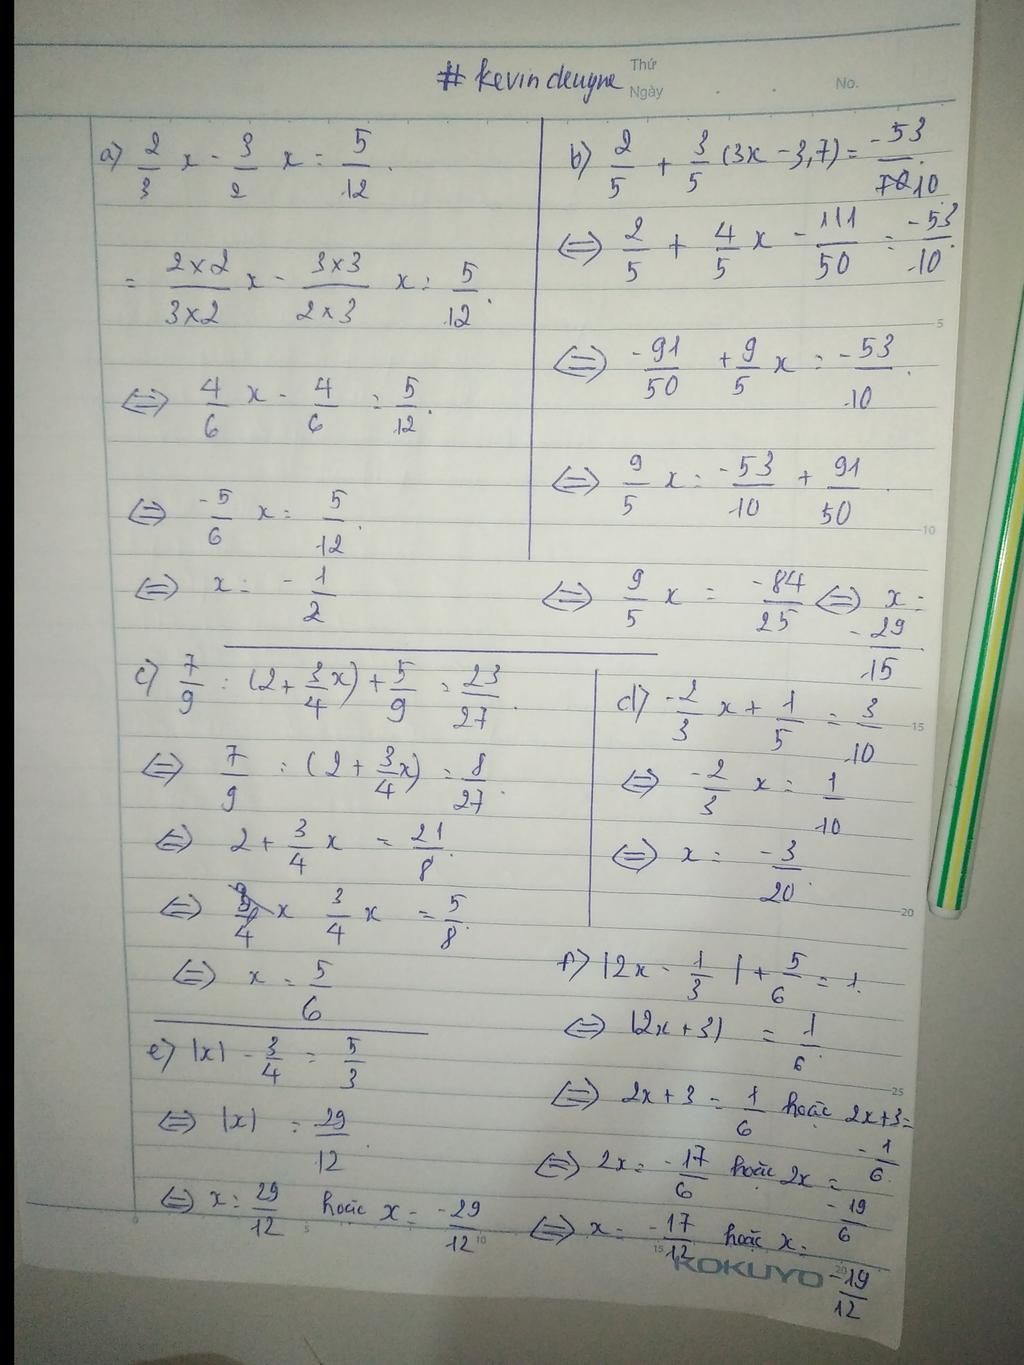 # kevindeuyne
Thứ
Ngày
No.
a) 2/3 x - 3/2 x = 5/12.
= 2×2/3×2 x - 3×3/2×3 x = 5/12.
⇔ 4/6 x - 4/6 = 5/12.
⇔ -5/6 x = 5/12.
⇔ x = -1/2
b) 2/5 + 3/5 (3x - 3,7) = -53/10
⇔ 2/5 + 4/5 x - 111/50 = -53/10.
⇔ -91/50 + 9/5 x = -53/10.
⇔ 9/5 x = -53/10 + 91/50
⇔ 9/5 x = -84/25 ⇔ x =
-29/15
c) 7/9 : (2 + 3/4 x) + 5/9 = 23/27.
⇔ 7/9 : (2 + 3/4 x) = 8/27.
⇔ 2 + 3/4 x = 21/8.
⇔ 3/4 x = 5/8.
⇔ x = 5/6
d) -2/3 x + 1/5 = 3/10
⇔ -2/3 x = 1/10
⇔ x = -3/20.
e) |x| - 3/4 = 5/3
⇔ |x| = 29/12.
⇔ x = 29/12 hoặc x = -29/12
f) |2x - 1/3| + 5/6 = 1.
⇔ |2x + 3| = 1/6.
⇔ 2x + 3 = 1/6 hoặc 2x + 3 =
-1/6.
⇔ 2x = -17/6 hoặc 2x =
-19/6
⇔ x = -17/12 hoặc x =
-19/12
KOKUYO
5
10
15
20
25
5
10
15
20